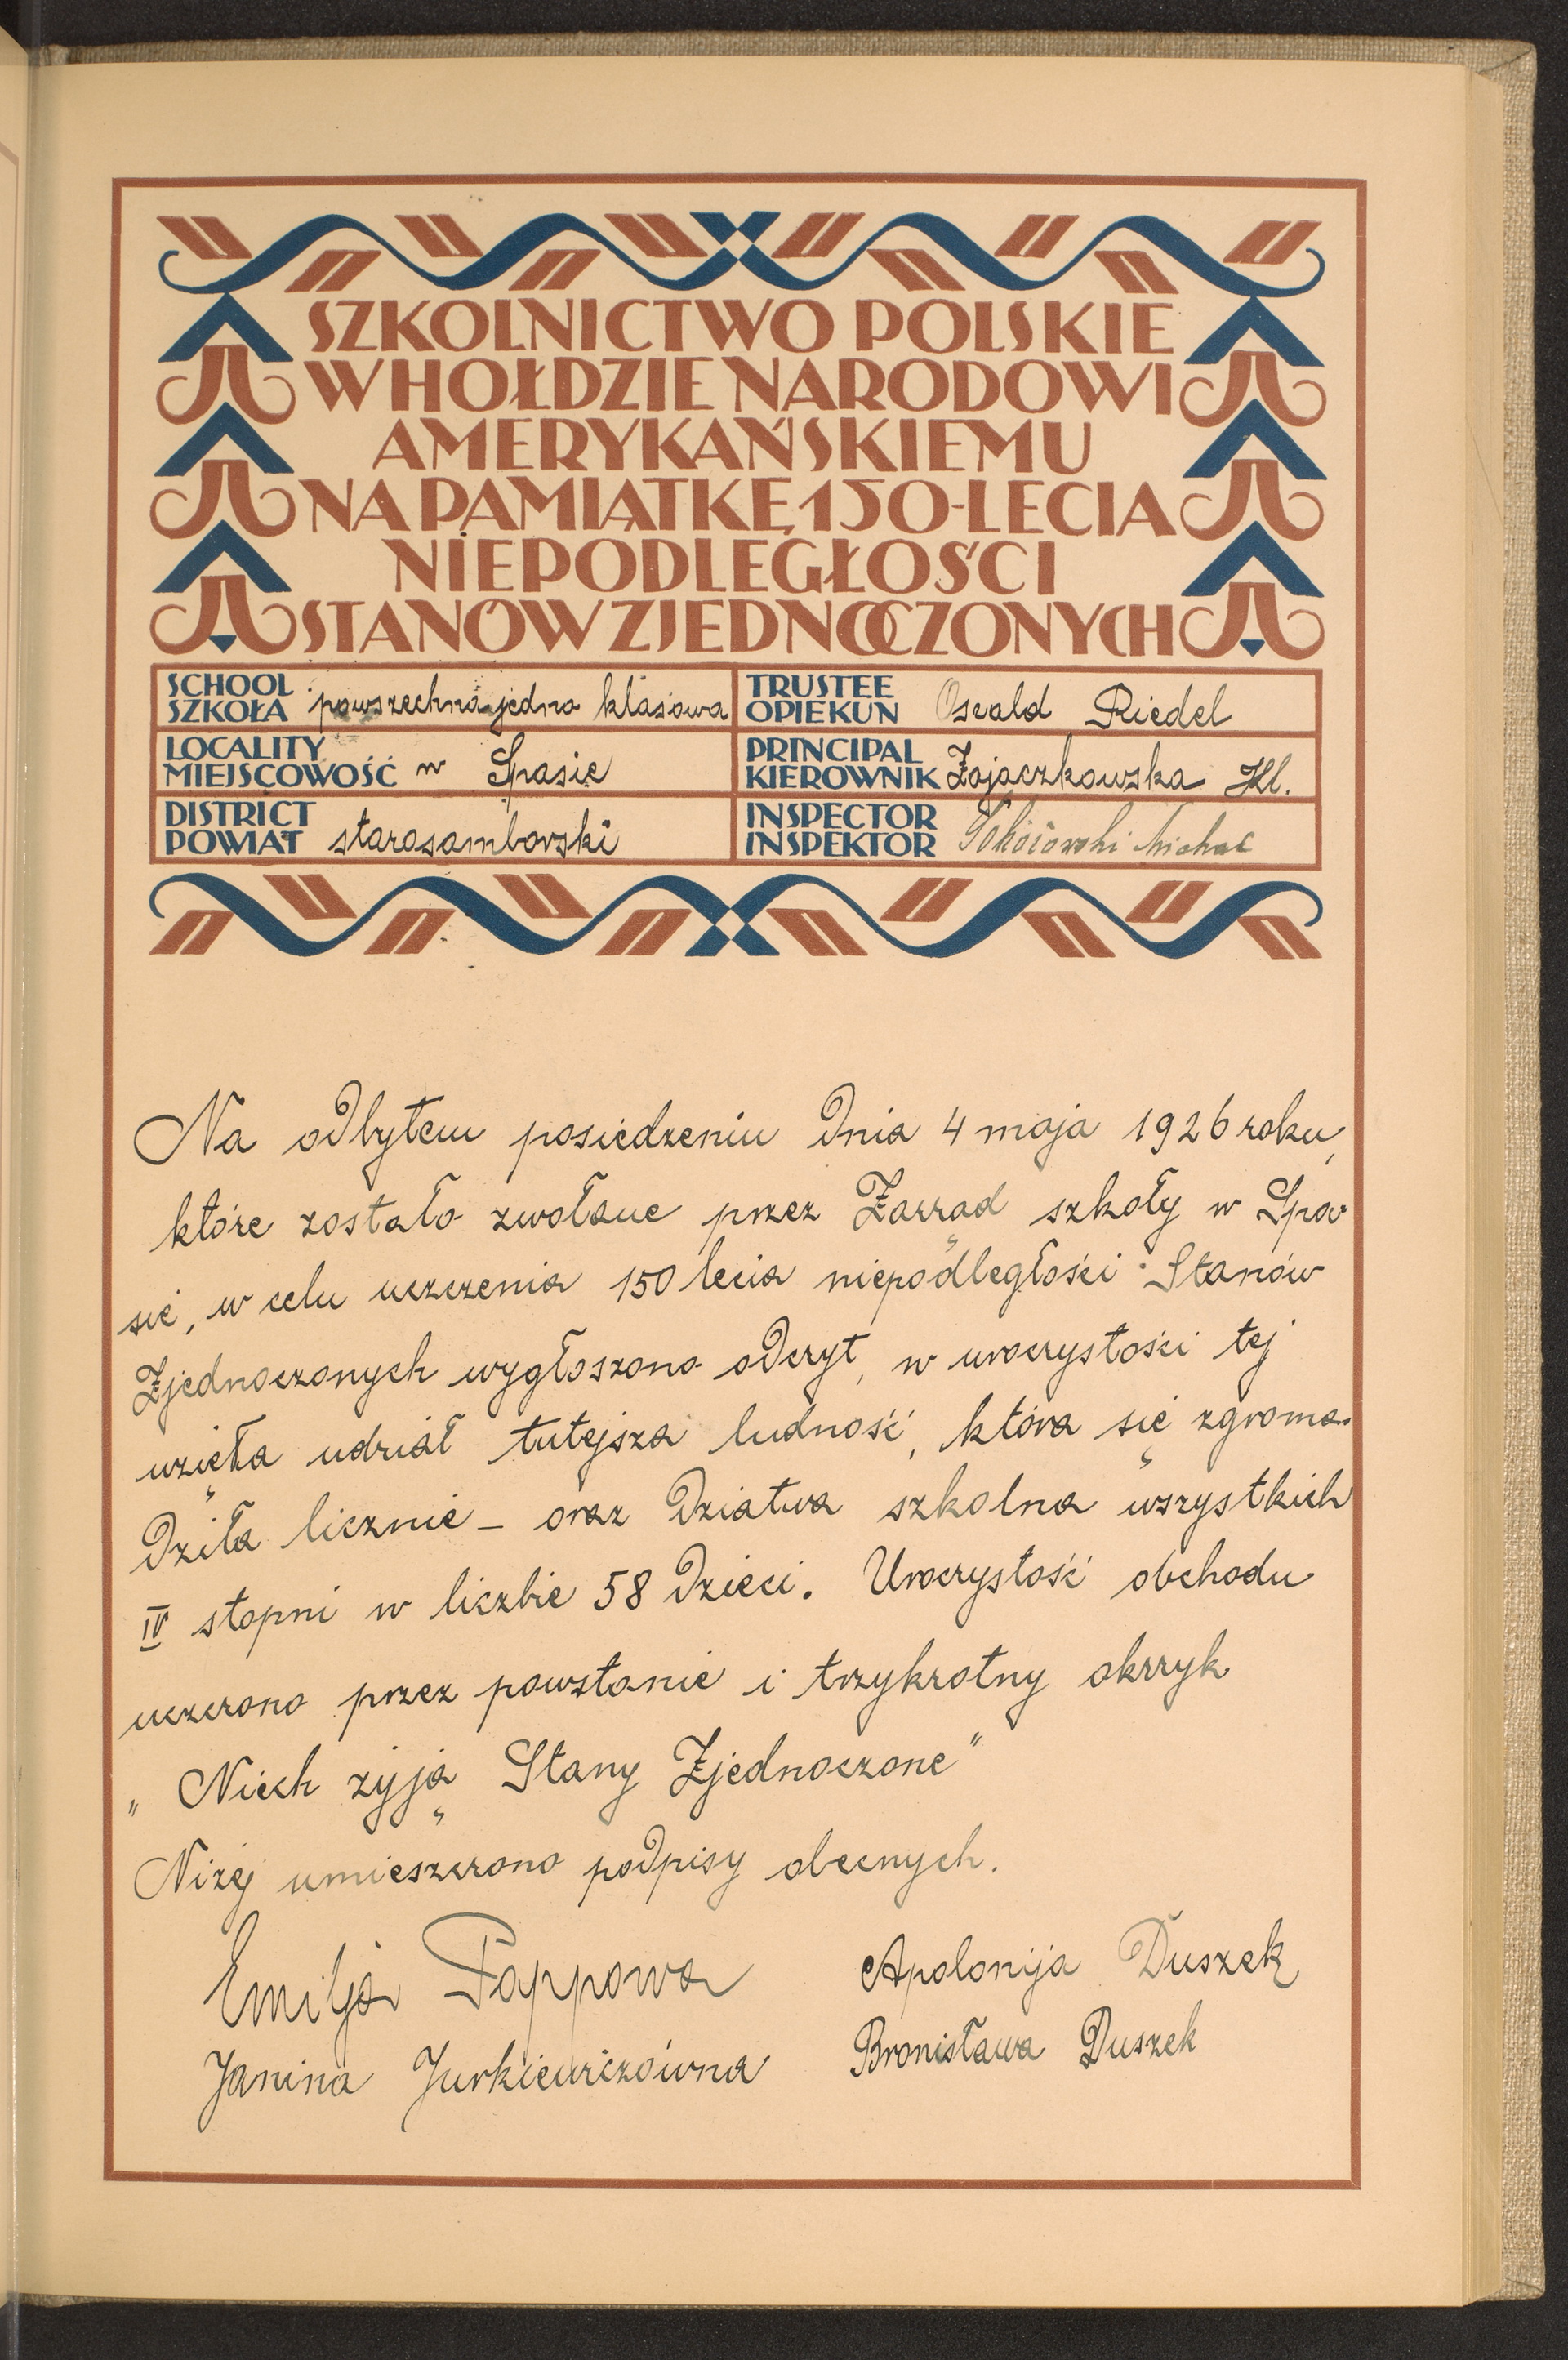 SZKOLNICTWO POLSKIE
W HOŁDZIE NARODOWI
AMERYKAŃSKIEMU
NA PAMIĄTKĘ 150-LECIA
NIEPODLEGŁOŚCI
STANÓW ZJEDNOCZONYCH
SCHOOL
SZKOŁA powszechna jedno klasowa
TRUSTEE
OPIEKUN Oswald Riedel
LOCALITY
MIEJSCOWOŚĆ w Spasie
PRINCIPAL
KIEROWNIK Zajączkowska Kl.
DISTRICT
POWIAT starosamborski
INSPECTOR
INSPEKTOR Michał
Na odbytem posiedzeniu dnia 4 maja 1926 roku,
które zostało zwołane przez Zarząd szkoły w Spa-
sie, w celu uczczenia 150 lecia niepodległości Stanów
Zjednoczonych wygłoszono odczyt, w uroczystości tej
wzięła udział tutejsza ludność, która się zgroma-
dziła licznie – oraz dziatwa szkolna wszystkich
IV stopni w liczbie 58 dzieci. Uroczystość obchodu
uczczono przez powstanie i trzykrotny okrzyk
„Niech żyją Stany Zjednoczone"
Niżej umieszczono podpisy obecnych.
Emilja Pappowa
Apolonija Duszek
Janina Jurkiewiczówna
Bronisława Duszek